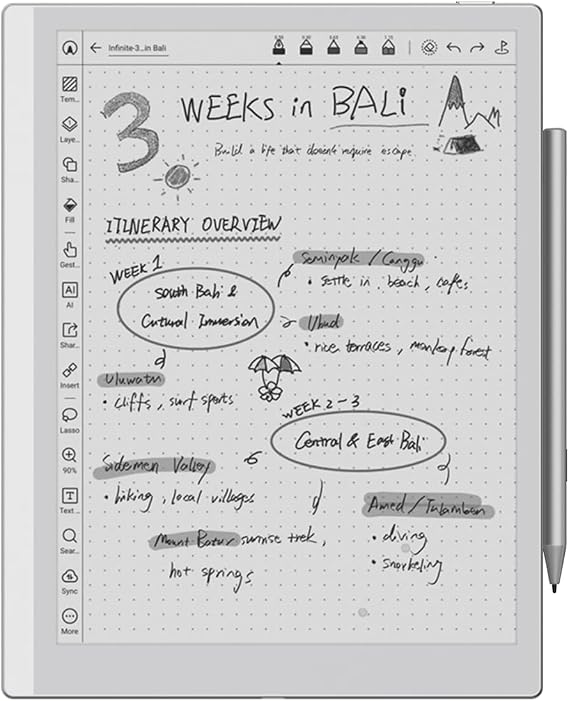 Infinite-3...in Bali
Tem...
Laye...
Sha...
Fill
Gest...
AI
AI
Shar...
Insert
Lasso
90%
Text ...
Sear...
Sync
More
3 WEEKS in BALi
Build a life that doesn't require escape.
ITINERARY OVERVIEW
WEEK 1
South Bali &
Cultural Immersion
Seminyak / Canggu
• settle in, beach, cafes
Ubud
• rice terraces, monkey forest
Uluwatu
• cliffs, surf spots
WEEK 2-3
Central & East Bali
Sidemen Valley
• hiking, local villages
Mount Batur sunrise trek,
hot springs
Amed / Tulamben
• diving
• snorkeling